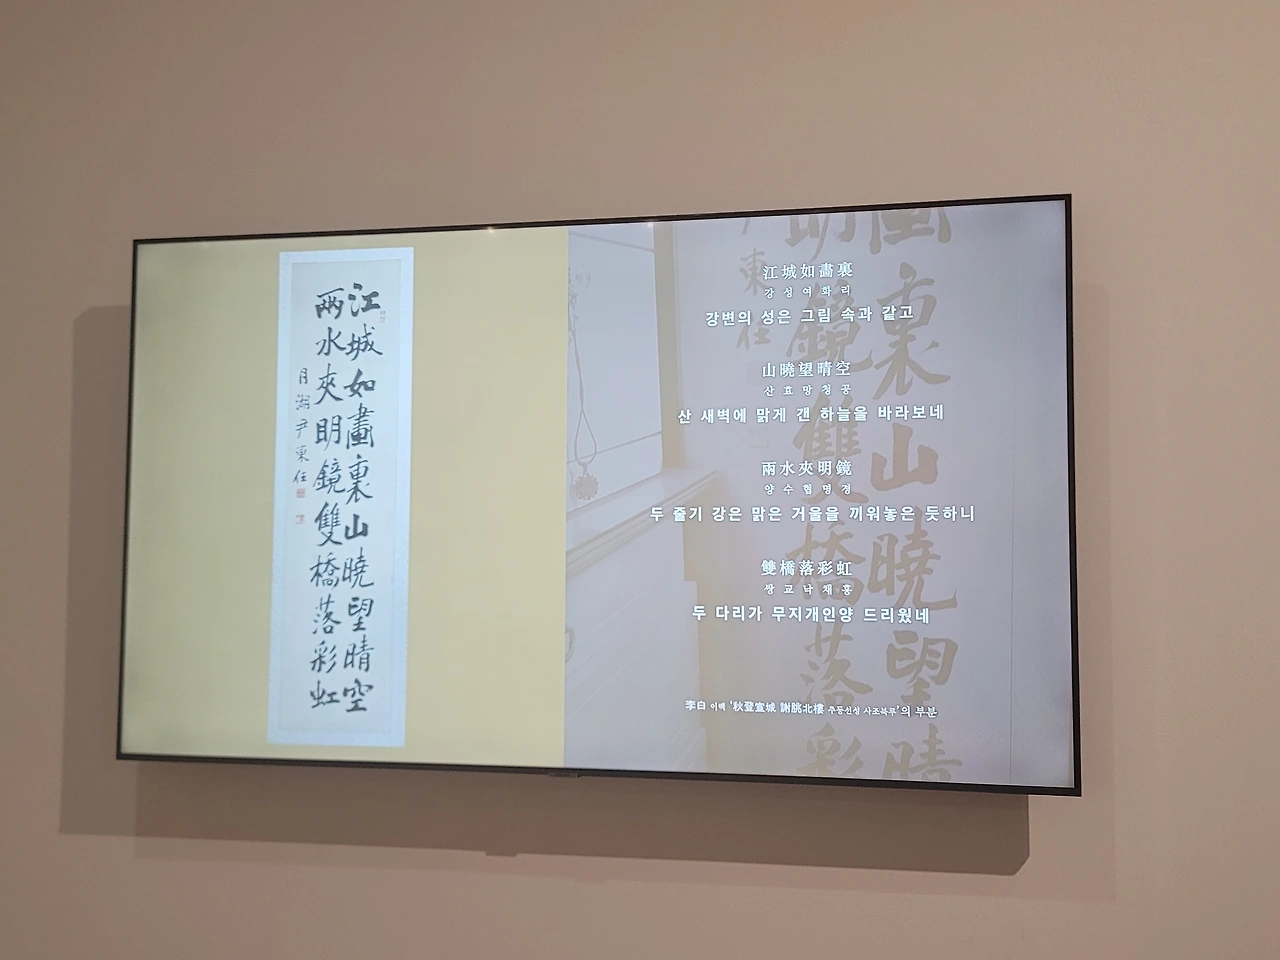 江城如畵裏山曉望晴空
兩水夾明鏡雙橋落彩虹
月湖尹東任
江城如畵裏
강성여화리
강변의 성은 그림 속과 같고
山曉望晴空
산효망청공
산 새벽에 맑게 갠 하늘을 바라보네
兩水夾明鏡
양수협명경
두 줄기 강은 맑은 거울을 끼워놓은 듯하니
雙橋落彩虹
쌍교낙채홍
두 다리가 무지개인양 드리웠네
李白 이백 '秋登宣城 謝朓北樓 추등선성 사조북루'의 부분